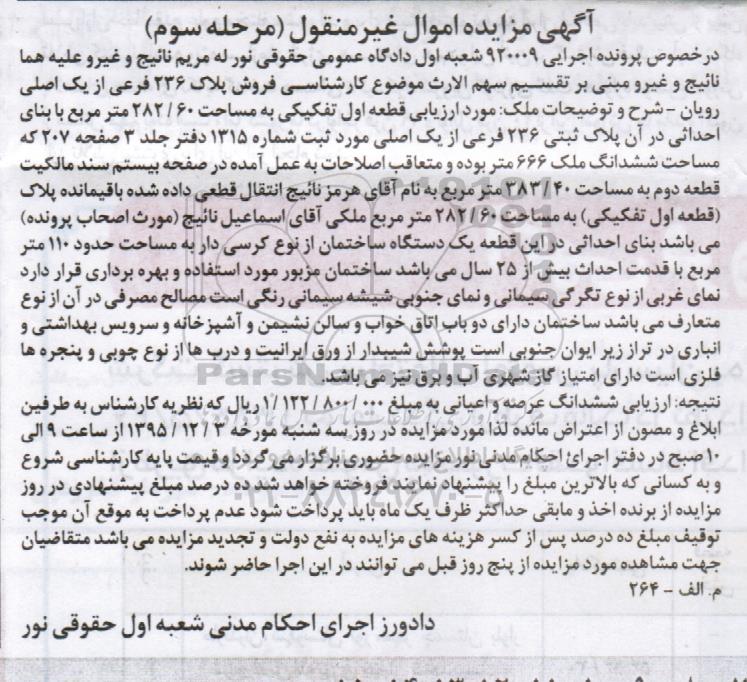 آگهی مزایده اموال غیر منقول (مرحله سوم)
درخصوص پرونده اجرایی ۹۲۰۰۰۹ شعبه اول دادگاه عمومی حقوقی نور له مریم نائیج و غیرو علیه هما
نائیج و غیرو مبنی بر تقسیم سهم الارث موضوع کارشناسی فروش پلاک ۲۳۶ فرعی از یک اصلی
رویان - شرح و توضیحات ملک: مورد ارزیابی قطعه اول تفکیکی به مساحت ۲۸۲/۶۰ متر مربع با بنای
احداثی در آن پلاک ثبتی ۲۳۶ فرعی از یک اصلی مورد ثبت شماره ۱۳۱۵ دفتر جلد ۳ صفحه ۲۰۷ که
مساحت ششدانگ ملک ۶۶۶ متر بوده و متعاقب اصلاحات به عمل آمده در صفحه بیستم سند مالکیت
قطعه دوم به مساحت ۳۸۳/۴۰ متر مربع به نام آقای هرمز نائیج انتقال قطعی داده شده باقیمانده پلاک
(قطعه اول تفکیکی) به مساحت ۲۸۲/۶۰ متر مربع ملکی آقای اسماعیل نائیج (مورث اصحاب پرونده)
می باشد بنای احداثی در این قطعه یک دستگاه ساختمان از نوع کرسی دار به مساحت حدود ۱۱۰ متر
مربع با قدمت احداث بیش از ۲۵ سال می باشد ساختمان مزبور مورد استفاده و بهره برداری قرار دارد
نمای غربی از نوع تگرگی سیمانی و نمای جنوبی شیشه سیمانی رنگی است مصالح مصرفی در آن از نوع
متعارف می باشد ساختمان دارای دو باب اتاق خواب و سالن نشیمن و آشپزخانه و سرویس بهداشتی و
انباری در تراز زیر ایوان جنوبی است پوشش شیبدار از ورق ایرانیت و درب ها از نوع چوبی و پنجره ها
فلزی است دارای امتیاز گاز شهری آب و برق نیز می باشد.
نتیجه: ارزیابی ششدانگ عرصه و اعیانی به مبلغ ۱/۱۲۲/۸۰۰/۰۰۰ ریال که نظریه کارشناس به طرفین
ابلاغ و مصون از اعتراض مانده لذا مورد مزایده در روز سه شنبه مورخه ۱۳۹۵/۱۲/۳ از ساعت ۹ الی
۱۰ صبح در دفتر اجرائ احکام مدنی نور مزایده حضوری برگزار می گردد و قیمت پایه کارشناسی شروع
و به کسانی که بالاترین مبلغ را پیشنهاد نمایند فروخته خواهد شد ده درصد مبلغ پیشنهادی در روز
مزایده از برنده اخذ و مابقی حداکثر ظرف یک ماه باید پرداخت شود عدم پرداخت به موقع آن موجب
توقیف مبلغ ده درصد پس از کسر هزینه های مزایده به نفع دولت و تجدید مزایده می باشد متقاضیان
جهت مشاهده مورد مزایده از پنج روز قبل می توانند در این اجرا حاضر شوند.
م. الف - ۲۶۴
دادورز اجرای احکام مدنی شعبه اول حقوقی نور
ParsNamadData
۰۲۱-۸۸۳۴۹۶۷۰-۵